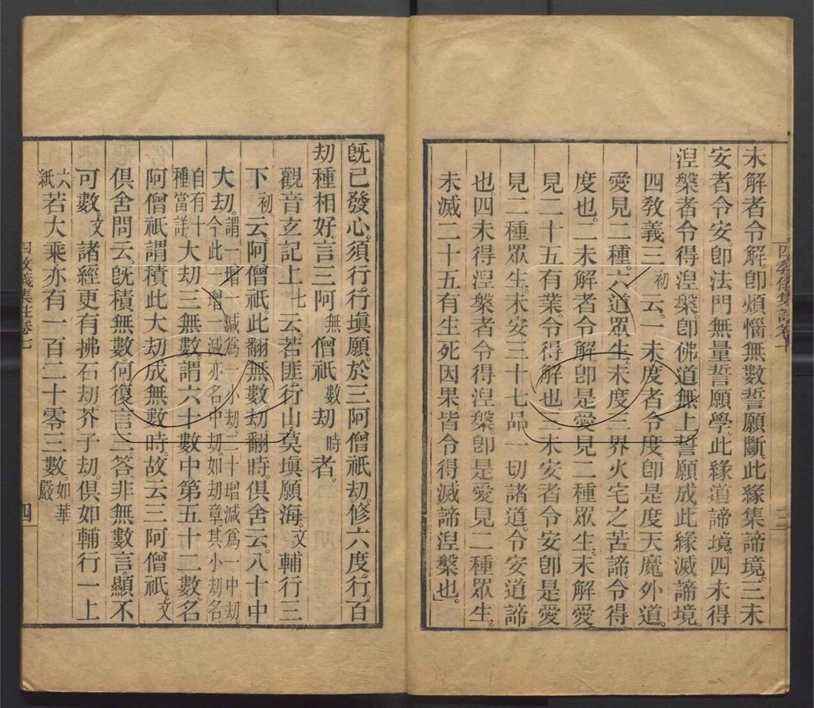 未解者令解卽煩惱無數誓願斷此緣集諦境三未
安者令安卽法門無量誓願學此緣道諦境四未得
涅槃者令得涅槃卽佛道無上誓願成此緣滅諦境
四教義三初云一未度者令度卽是度天魔外道
愛見二種六道眾生未度三界火宅之苦諦令得
度也二未解者令解卽是愛見二種眾生未解愛
見二十五有業令得解也三未安者令安卽是愛
見二種眾生未安三十七品一切諸道令安道諦
也四未得涅槃者令得涅槃卽是愛見二種眾生
未滅二十五有生死因果皆令得滅諦涅槃也
旣已發心須行行塡願於三阿僧祇劫修六度行百
劫種相好言三阿無僧祇數劫時者
觀音玄記上七云若匪行山莫塡願海文輔行三
下初云阿僧祇此翻無數劫翻時俱舍云八十中
大劫謂一增一減爲一小劫二十增減爲一中劫
今此一增一減亦名中劫如劫章其小劫名
自有十
種當詳大劫三無數謂六十數中第五十二數名
阿僧祇謂積此大劫成無數時故云三阿僧祇文
俱舍問云旣積無數何復言三答非無數言顯不
可數文諸經更有拂石劫芥子劫俱如輔行一上
六
紙若大乘亦有一百二十零三數如華
嚴
四教義集註卷七
四